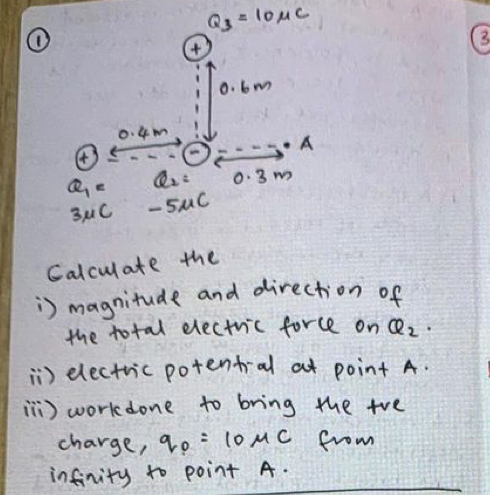 ① Q3 = 10 μC
3
+
0.6m
0.4m
+ - A
Q1 = Q2 = 0.3 m
3μC -5μC
Calculate the
i) magnitude and direction of
the total electric force on Q2.
ii) electric potential at point A.
iii) workdone to bring the +ve
charge, q0 = 10 μC from
infinity to point A.